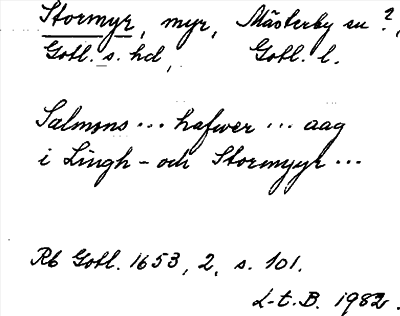 Stormyr, myr, Mästerby sn?,
Gotl. s. hd, Gotl. l.
Salmons ... hafwer ... aag
i Lingh- och Stormyyr ...
Rb Gotl. 1653, 2, s. 101.
L-t. B. 1982.